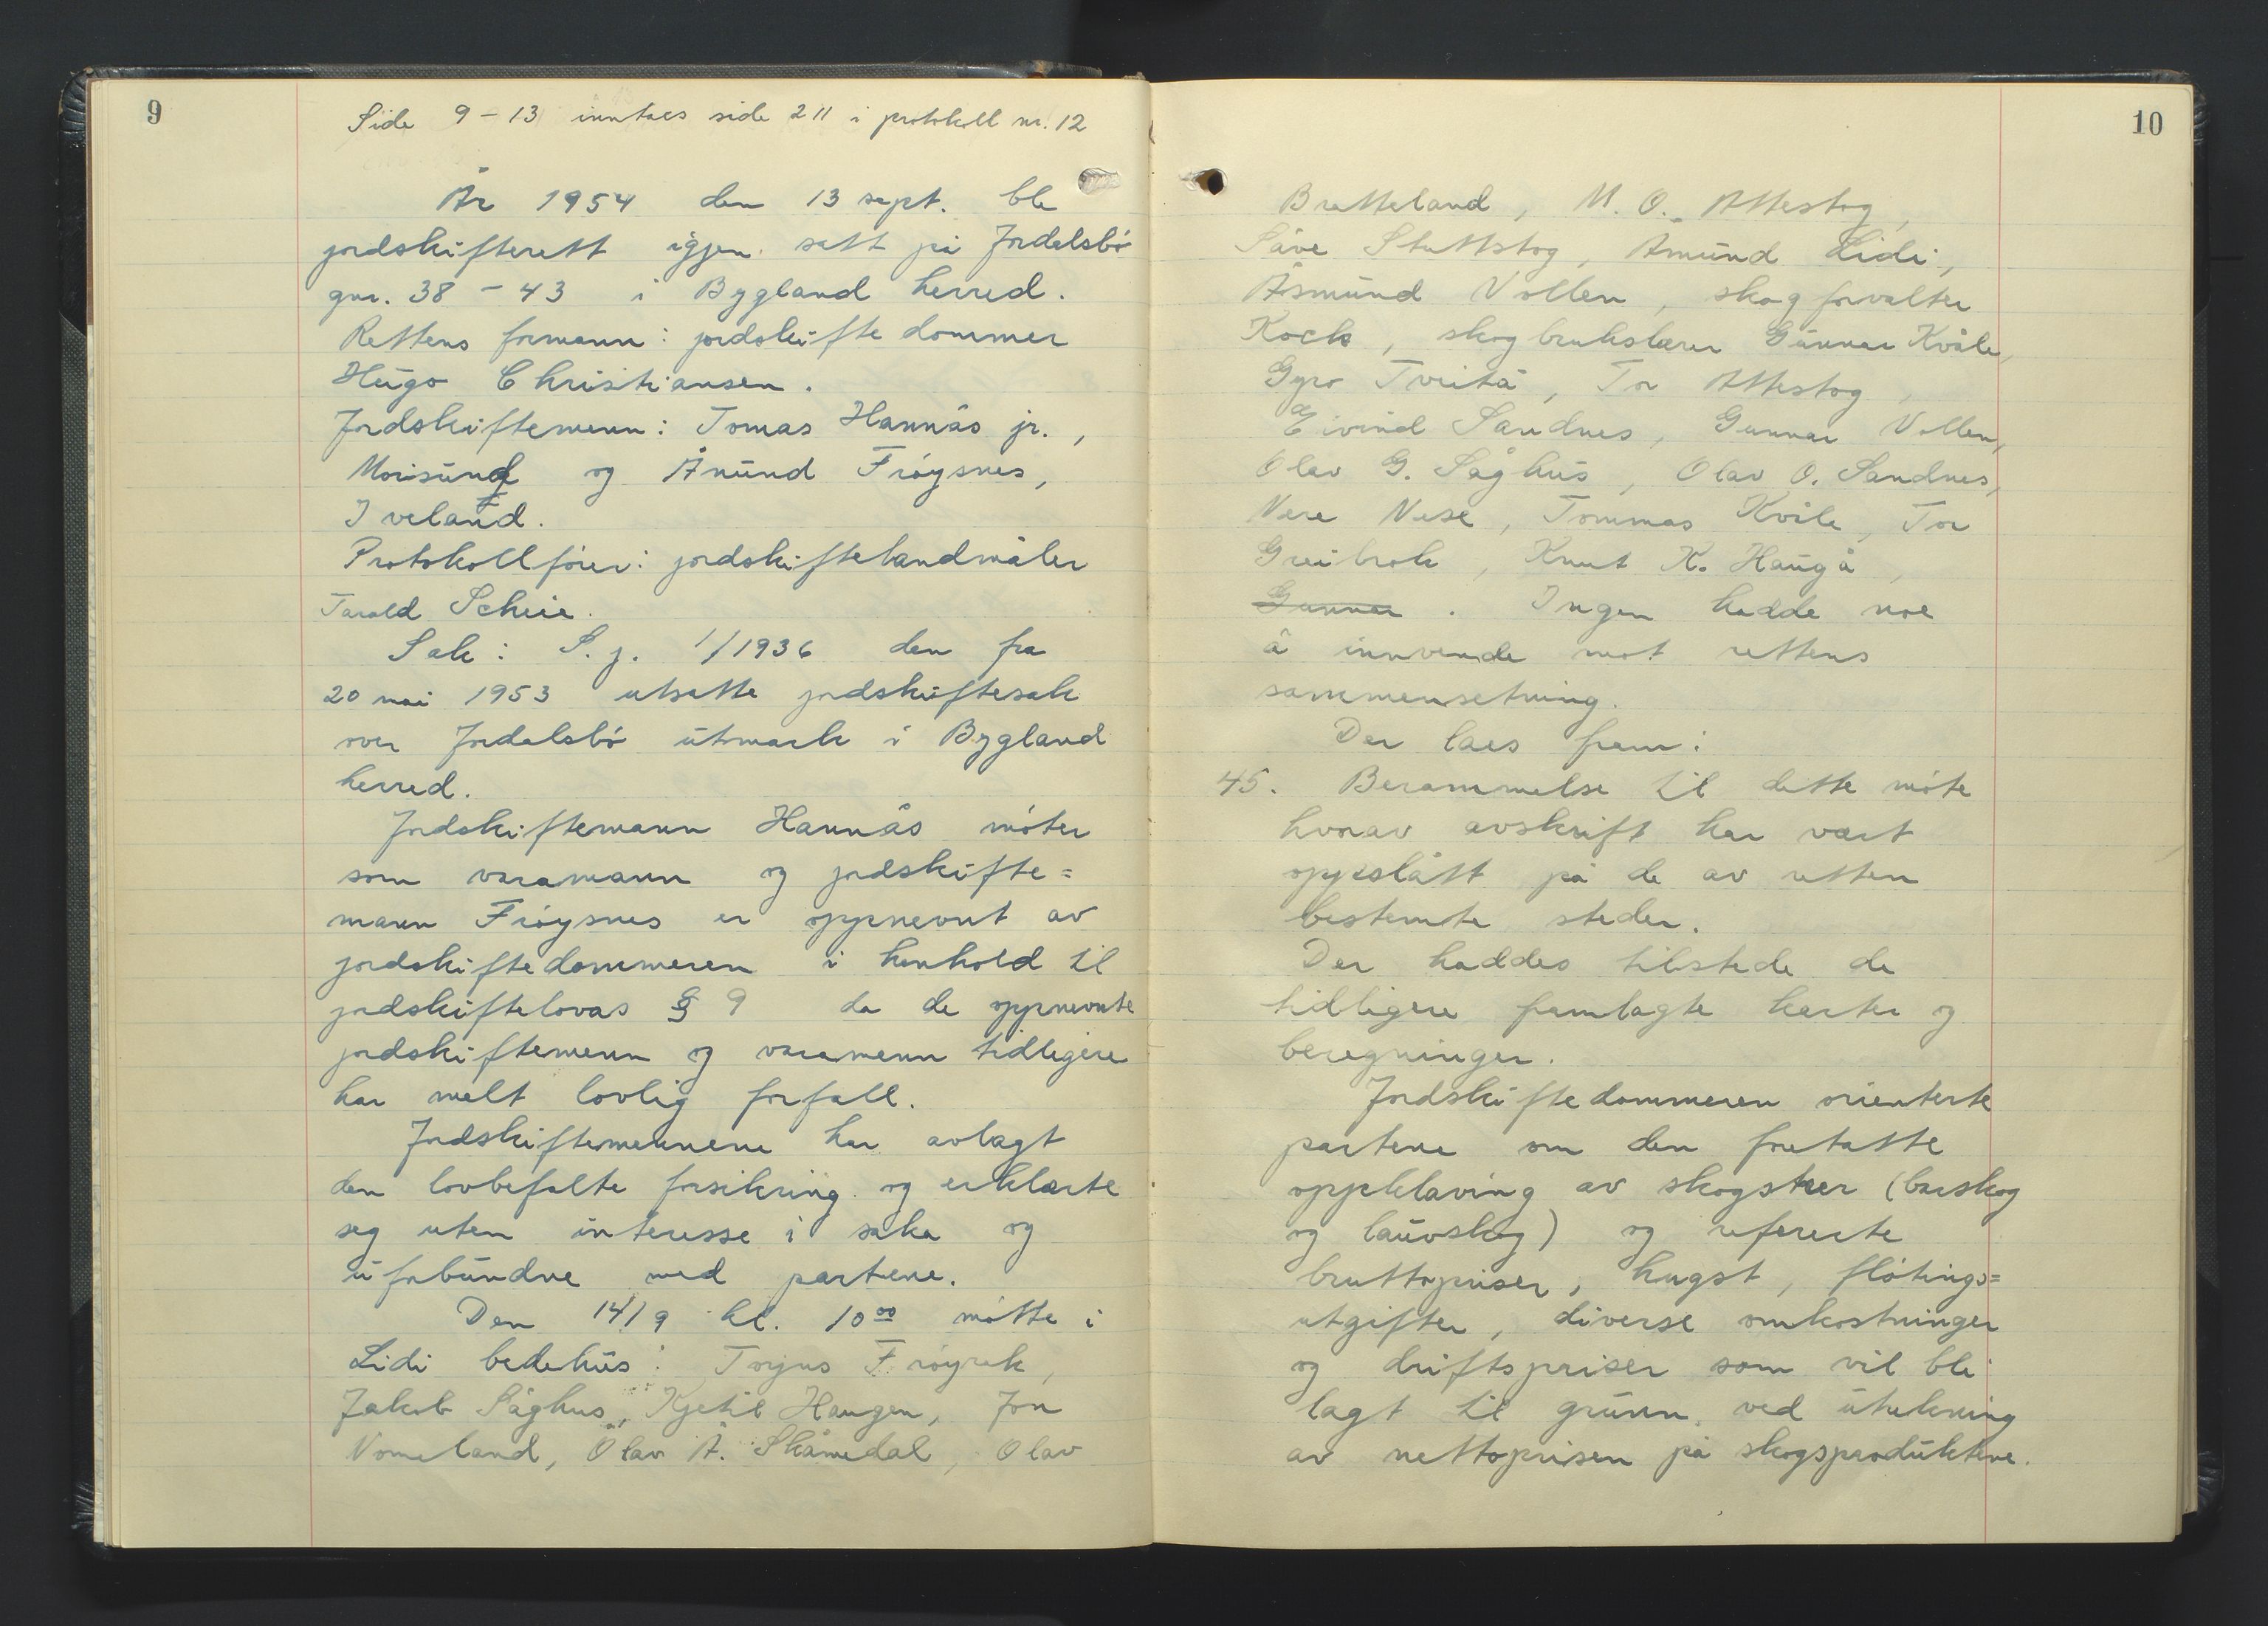 9
Side 9 – 13 inntaes side 211 i protokoll nr. 12
År 1954 den 13 sept. ble
jordskifterett igjen satt på Jordalsbø
gnr. 38 – 43 i Bygland herred.
Rettens formann: jordskiftedommer
Hugo Christiansen.
Jordskiftemenn: Tomas Hannås jr.,
og Ånund Frøysnes,
Iveland.
Protokollfører: jordskiftelandmåler
Tarald Scheie.
Sak: S. j. 1/1936 den fra
20 mai 1953 utsatte jordskiftesak
over Jordalsbø utmark i Bygland
herred.
Jordskiftemann Hannås møter
som varamann og jordskifte=
mann Frøysnes er oppnevnt av
jordskiftedommeren i henhold til
jordskiftelovas § 9 da de oppnevnte
jordskiftemenn og varamenn tidligere
har melt lovlig forfall.
Jordskiftemennene har avlagt
den lovbefalte forsikring og erklærte
seg uten interesse i saka og
uforbundne med partene.
Den 14/9 kl. 10⁰⁰ møtte i
Lidi bedehus: Torjus Frøyrak,
Jakob Såghus, Kjetil Haugen, Jon
Nomeland, Olav Å. Skåmedal, Olav
10
Bratteland, M. O. Attestog,
Såve Stuttstog, Åmund Lidi,
Åsmund Vollen, skogforvalter
Kock, skogbrukslærer Gunnar Kvåle,
Gyro Tveitå, Tor Attestog,
Eivind Sandnes, Gunnar Vollen,
Olav G. Såghus, Olav O. Sandnes,
Nese, Tommas Kvåle, Tor
Greibrok, Knut K. Haugå,
Gunnar . Ingen hadde noe
å innvende mot rettens
sammensetning.
Der laes fram:
45. Berammelse til dette møte
hvorav avskrift har vært
oppslått på de av retten
bestemte steder.
Der haddes tilstede de
tidligere framlagte karter og
beregninger.
Jordskiftedommeren orienterte
partene om den foretatte
oppklaving av skogstrær (barskog
og lauvskog) og refererte
bruttopriser, hugst, fløtings=
utgifter, diverse omkostninger
og driftspriser som vil bli
lagt til grunn ved utrekning
av nettoprisen på skogsproduktene.